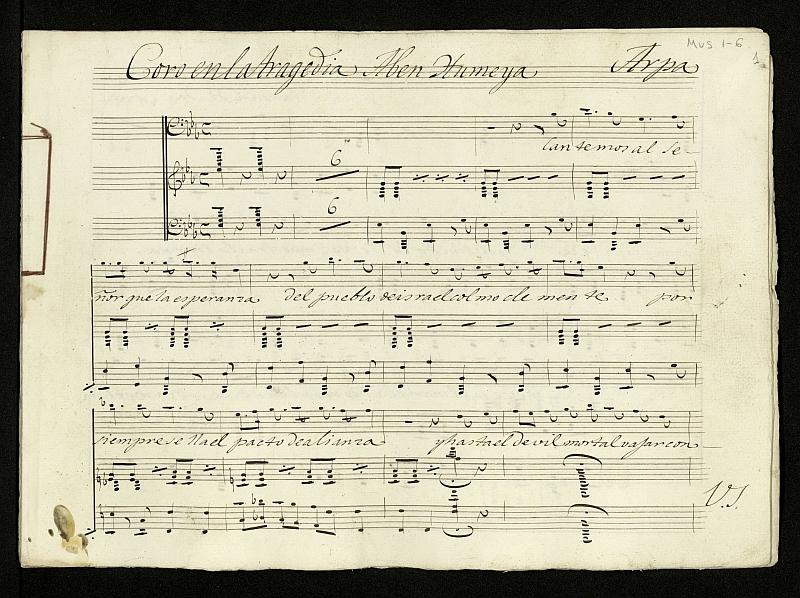 MUS 1-6
1
Coro en la tragedia Aben Humeya Arpa
Cantemos al Se-
6
6
ñor que la esperanza del pueblo de israel colmo clemente por
siempre sella el pacto de alianza y hasta el devil mortal vajar con
V.S.